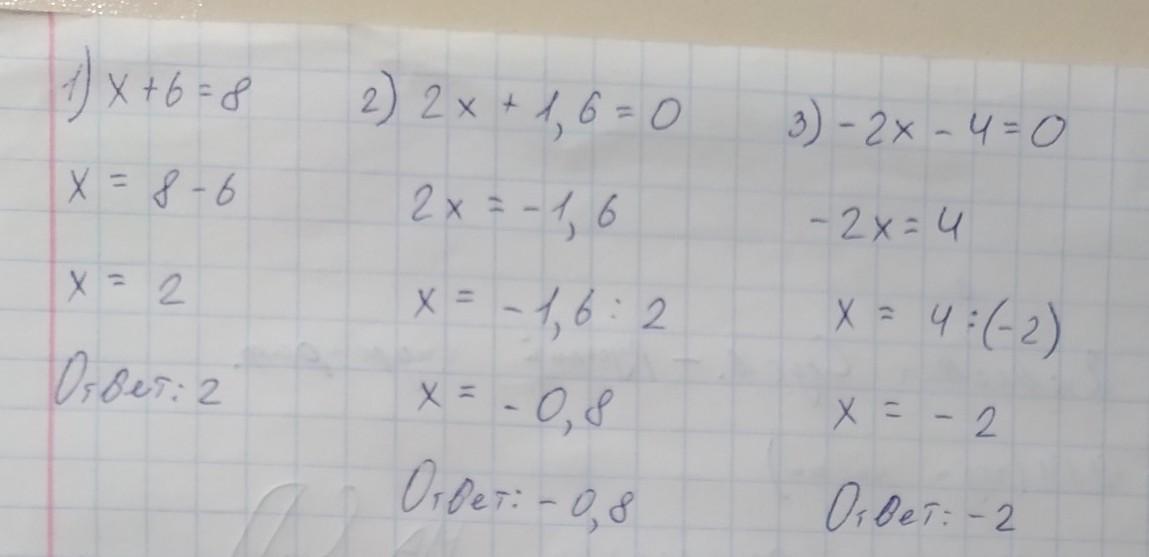 1) x + 6 = 8
x = 8 - 6
x = 2
Ответ: 2
2) 2x + 1,6 = 0
2x = -1,6
x = -1,6 : 2
x = -0,8
Ответ: -0,8
3) -2x - 4 = 0
-2x = 4
x = 4 : (-2)
x = -2
Ответ: -2